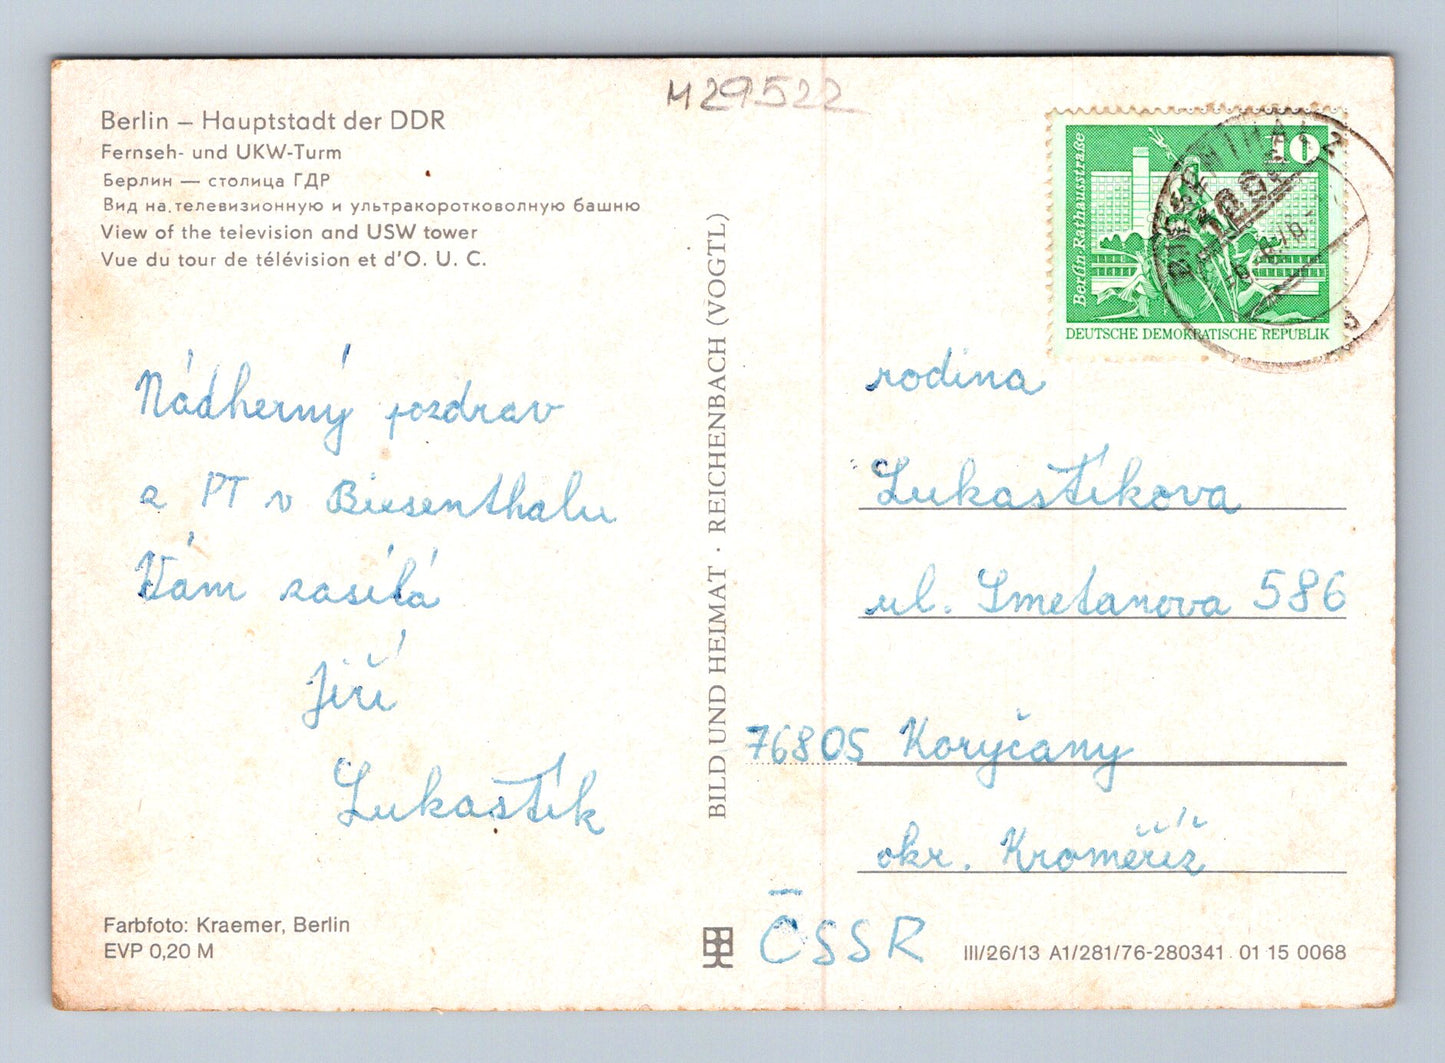 M29522
Berlin – Hauptstadt der DDR
Fernseh- und UKW-Turm
Берлин — столица ГДР
Вид на телевизионную и ультракоротковолную башню
View of the television and USW tower
Vue du tour de télévision et d'O. U. C.
Nádherný pozdrav
z PT v Biesenthalu
Vám zasílá
Jiří
Lukaštík
Farbfoto: Kraemer, Berlin
EVP 0,20 M
BILD UND HEIMAT · REICHENBACH (VOGTL)
Berlin-Rathausstraße
10
DEUTSCHE DEMOKRATISCHE REPUBLIK
rodina
Lukaštíkova
ul. Smetanova 586
76805 Koryčany
okr. Kroměříž
ČSSR
III/26/13 A1/281/76-280341 01 15 0068